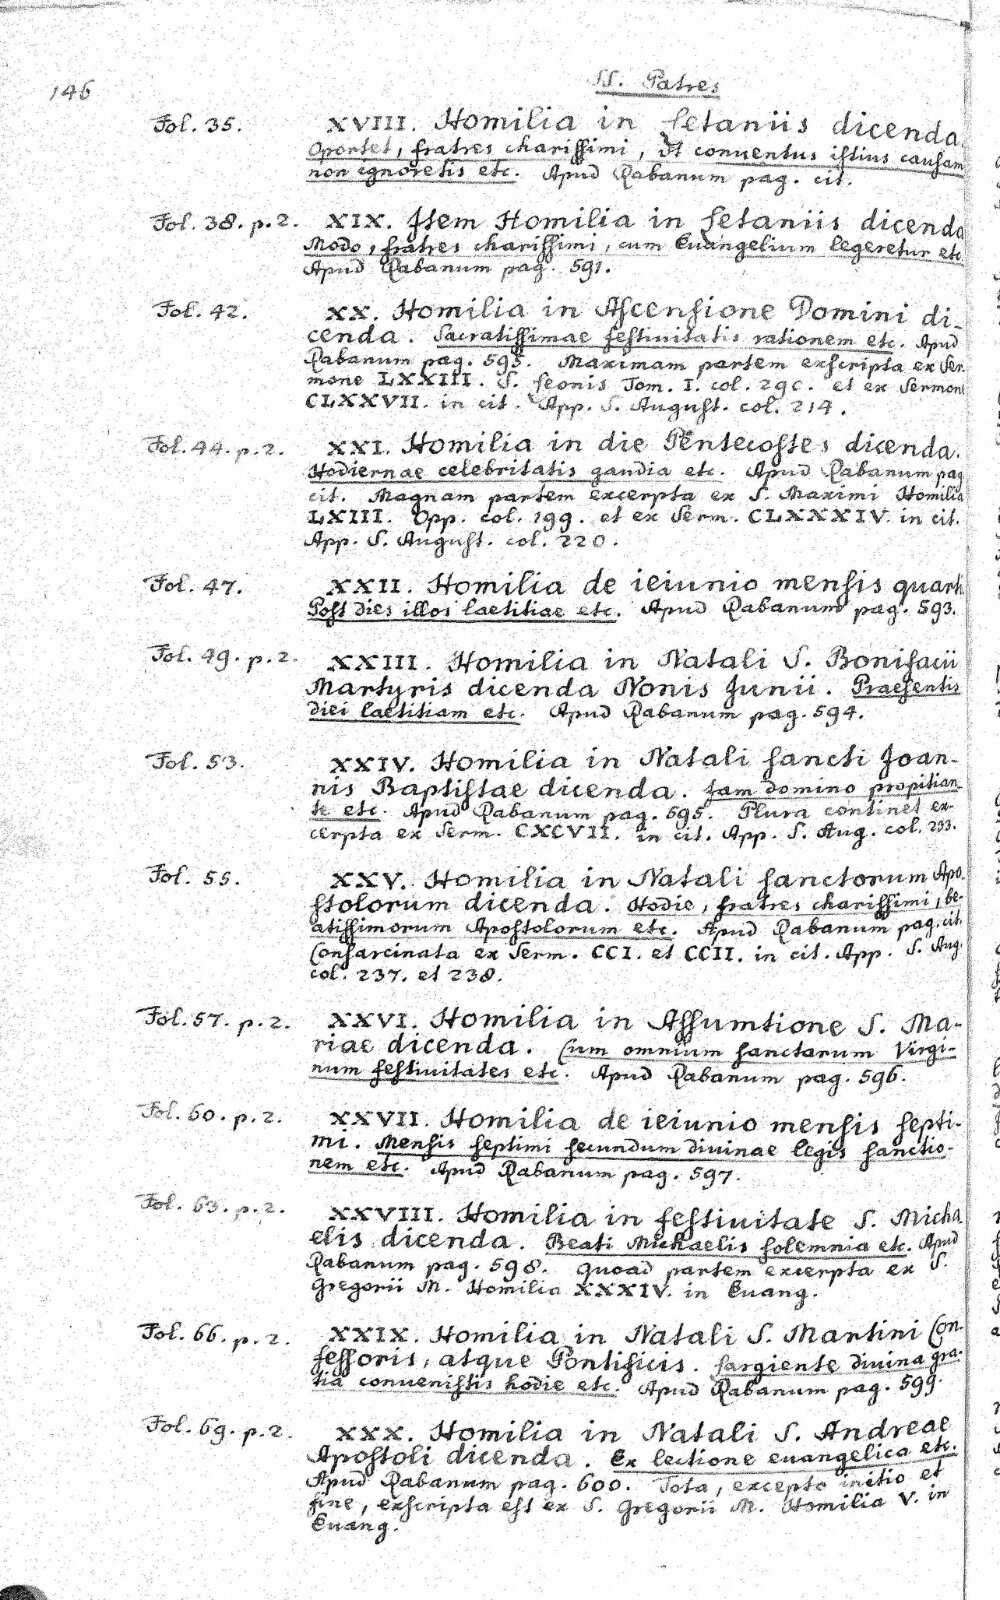 146
SS. Patres
Fol. 35. XVIII. Homilia in Letaniis dicenda.
Oportet, fratres charissimi, Vt conuentus istius causam
non ignoretis etc. Apud Rabanum pag. cit.
Fol. 38. p. 2. XIX. Item Homilia in Letaniis dicenda
Modo, fratres charissimi, cum Euangelium legeretur etc.
Apud Rabanum pag. 591.
Fol. 42. XX. Homilia in Ascensione Domini di-
cenda. Sacratissimae festiuitatis rationem etc. Apud
Rabanum pag. 595. Maximam partem exscripta ex Ser-
mone LXXIII. S. Leonis Tom. I. col. 290. et ex Sermone
CLXXVII. in cit. App. S. August. col. 214.
Fol. 44. p. 2. XXI. Homilia in die Pentecostes dicenda.
Hodiernae celebritatis gaudia etc. Apud Rabanum pag.
cit. Magnam partem excerpta ex S. Maximi Homilia
LXIII. Opp. col. 199. et ex Serm. CLXXXIV. in cit.
App. S. August. col. 220.
Fol. 47. XXII. Homilia de ieiunio mensis quarti
Post dies illos laetitiae etc. Apud Rabanum pag. 593.
Fol. 49. p. 2. XXIII. Homilia in Natali S. Bonifacii
Martyris dicenda Nonis Junii. Praesentis
diei laetitiam etc. Apud Rabanum pag. 594.
Fol. 53. XXIV. Homilia in Natali sancti Joan-
nis Baptistae dicenda. Jam domino propitian-
te etc. Apud Rabanum pag. 595. Plura continet ex-
cerpta ex Serm. CXCVII. in cit. App. S. Aug. col. 233.
Fol. 55. XXV. Homilia in Natali sanctorum Apo-
stolorum dicenda. Hodie, fratres charissimi, be-
atissimorum Apostolorum etc. Apud Rabanum pag. cit.
Consarcinata ex Serm. CCI. et CCII. in cit. App. S. Aug.
col. 237. et 238.
Fol. 57. p. 2. XXVI. Homilia in Assumtione S. Ma-
riae dicenda. Cum omnium sanctarum Virgi-
num festiuitates etc. Apud Rabanum pag. 596.
Fol. 60. p. 2. XXVII. Homilia de ieiunio mensis septi-
mi. Mensis septimi secundum diuinae legis sanctio-
nem etc. Apud Rabanum pag. 597.
Fol. 63. p. 2. XXVIII. Homilia in festiuitate S. Micha
elis dicenda. Beati Michaelis solemnia etc. Apud
Rabanum pag. 598. quoad partem excerpta ex S.
Gregorii M. Homilia XXXIV. in Euang.
Fol. 66. p. 2. XXIX. Homilia in Natali S. Martini Con-
fessoris, atque Pontificis. Largiente diuina gra-
tia conuenistis hodie etc. Apud Rabanum pag. 599.
Fol. 69. p. 2. XXX. Homilia in Natali S. Andreae
Apostoli dicenda. Ex lectione euangelica etc.
Apud Rabanum pag. 600. Tota, excepto initio et
fine, exscripta est ex S. Gregorii M. Homilia V. in
Euang.